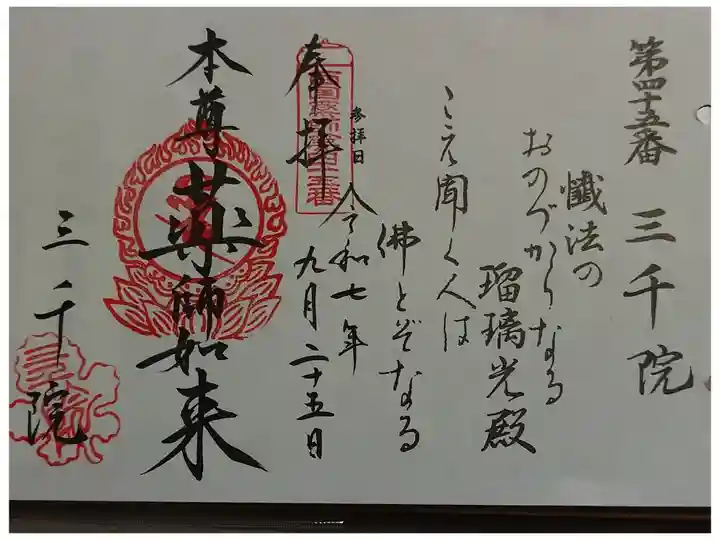 第四十五番 三千院
懺法の
おのづからなる
瑠璃光殿
こゑ聞く人は
佛とぞなる
奉拝
参拝日
令和七年
九月二十五日
本尊 薬師如来
三千院